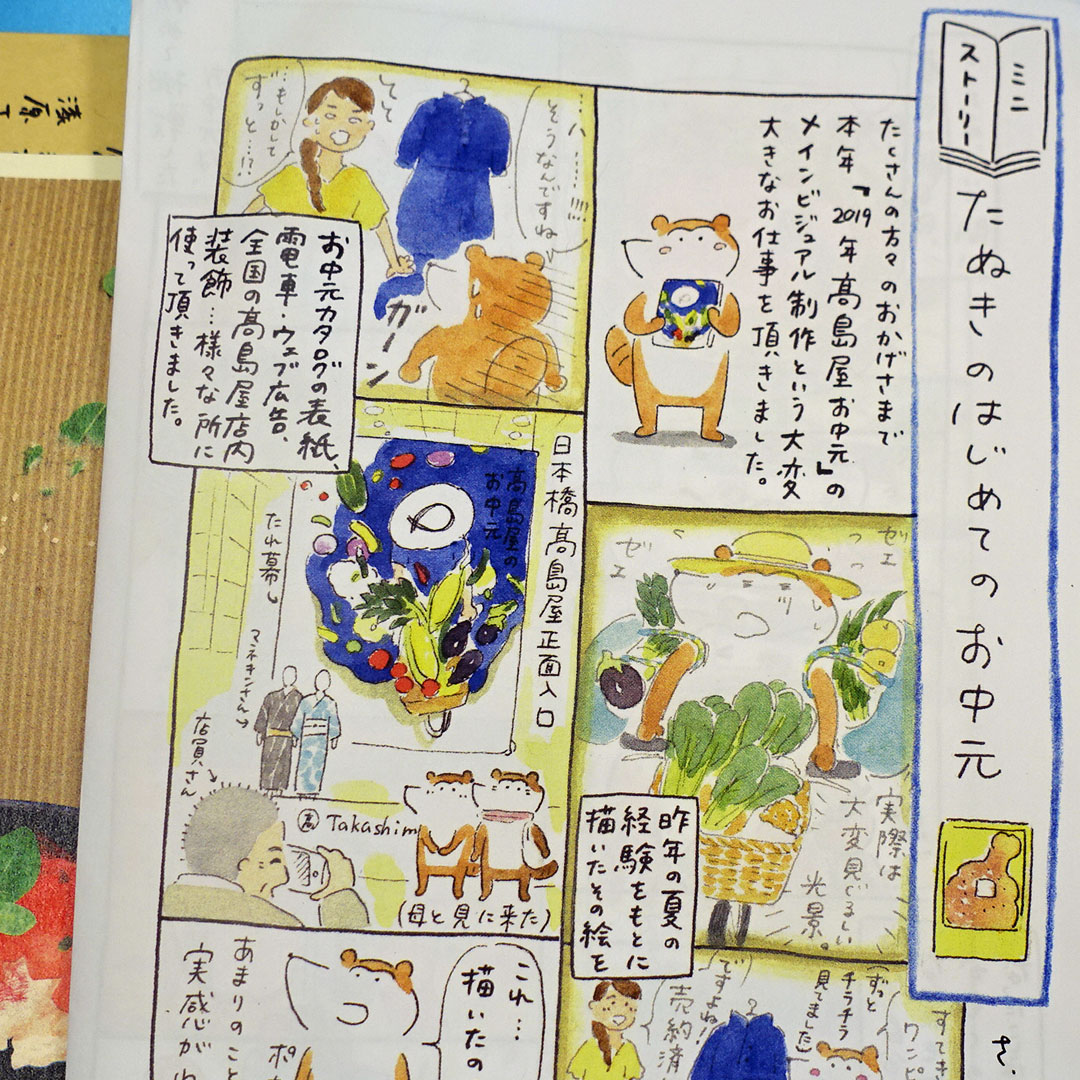 ミニ
ストーリー
たぬきのはじめてのお中元
たくさんの方々のおかげさまで
本年『2019年高島屋お中元』の
メインビジュアル制作という大変
大きなお仕事を頂きました。
ゼェ
ゼェ
実際は
大変見ぐるしい
光景。
昨年の夏の
経験をもとに
描いたその絵を
すてき
ワンピ
(ずっと
チラチラ
見てました)
ですよね!
売約済
さ、
…ハ
………!!!!
そうなんですね
そ
…もしかして
ずっと…!?
ガーン
お中元カタログの表紙、
電車・ウェブ広告、
全国の高島屋店内
装飾…様々な所に
使って頂きました。
日本橋高島屋正面入口
高島屋の
お中元
たれ幕
マネキンさん
店員さん
高 Takashim
(母と見に来た)
これ…
描いたの
ポ
あまりのこと
実感が
浅原